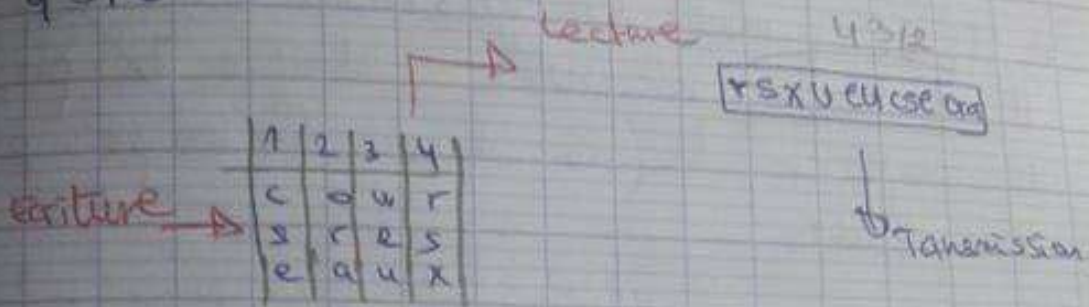 Lecture
4312
rsxueucseora
1 2 3 4
ecriture
c o u r
s r e s
e a u x
Transmission